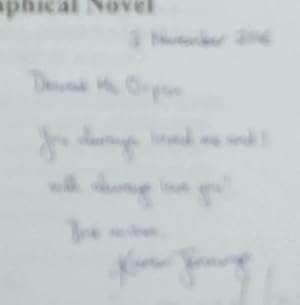 aphical Novel
3 November 2016
Dearest Ms
You always loved me and I
will always love you!
Best wishes,
Karen Jennings